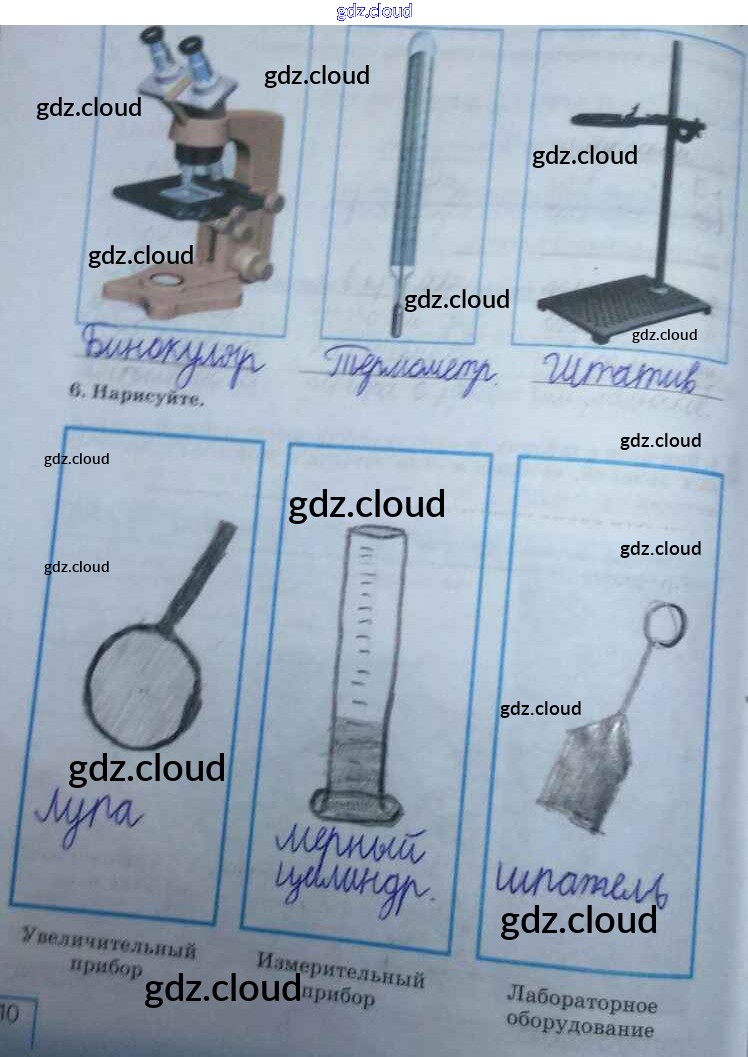 gdz.cloud
gdz.cloud
gdz.cloud
gdz.cloud
gdz.cloud
gdz.cloud
gdz.cloud
Бинокуляр
Термометр.
Штатив
6. Нарисуйте.
gdz.cloud
gdz.cloud
gdz.cloud
gdz.cloud
gdz.cloud
gdz.cloud
gdz.cloud
Лупа
мерный
цилиндр.
шпатель
gdz.cloud
Увеличительный
прибор
Измерительный
прибор
gdz.cloud
Лабораторное
оборудование
10